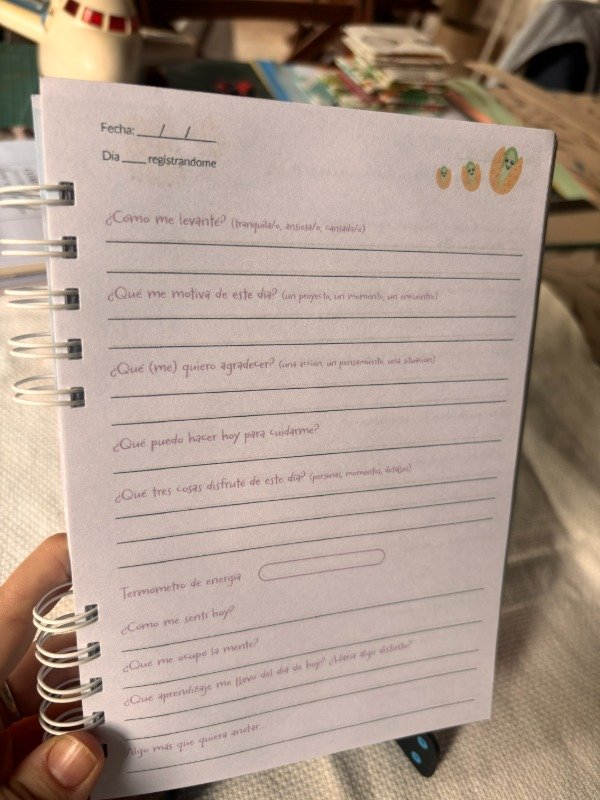 Fecha: ___/___/___
Día ____ registrandome
¿Cómo me levanté? (tranquila/o, ansiosa/o, cansada/o)
¿Qué me motiva de este día? (un proyecto, un momento, un encuentro)
¿Qué (me) quiero agradecer? (una acción, un pensamiento, una situación)
¿Qué puedo hacer hoy para cuidarme?
¿Qué tres cosas disfruté de este día? (personas, momentos, detalles)
Termómetro de energía
¿Cómo me sentí hoy?
¿Qué me ocupó la mente?
¿Qué aprendizaje me llevo del día de hoy? ¿Haría algo distinto?
Algo más que quiera anotar...